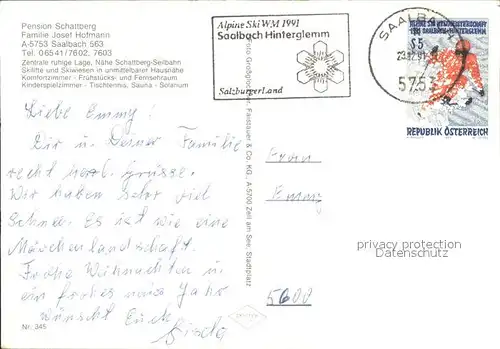 Pension Schattberg
Familie Josef Hofmann
A-5753 Saalbach 563
Tel. 06541/7602, 7603
Zentrale ruhige Lage, Nähe Schattberg-Seilbahn
Skilifte und Skiwiesen in unmittelbarer Haus­nähe
Komfortzimmer - Frühstücks- und Fernsehraum
Kinderspielzimmer - Tischtennis, Sauna - Solarium
Alpine Ski WM 1991
Saalbach Hinterglemm
SalzburgerLand
SAALBACH
5753
S5
REPUBLIK ÖSTERREICH
Liebe Emmy!
Dir u. Deiner Familie
recht herzl. Grüsse.
Wir haben sehr viel
Schnee. Es ist wie eine
Märchenlandschaft.
Frohe Weihnachten u.
ein frohes neues Jahr
wünscht Euch
Gisela
Frau
Emmy
5600
privacy protection
Datenschutz
Nr. 345